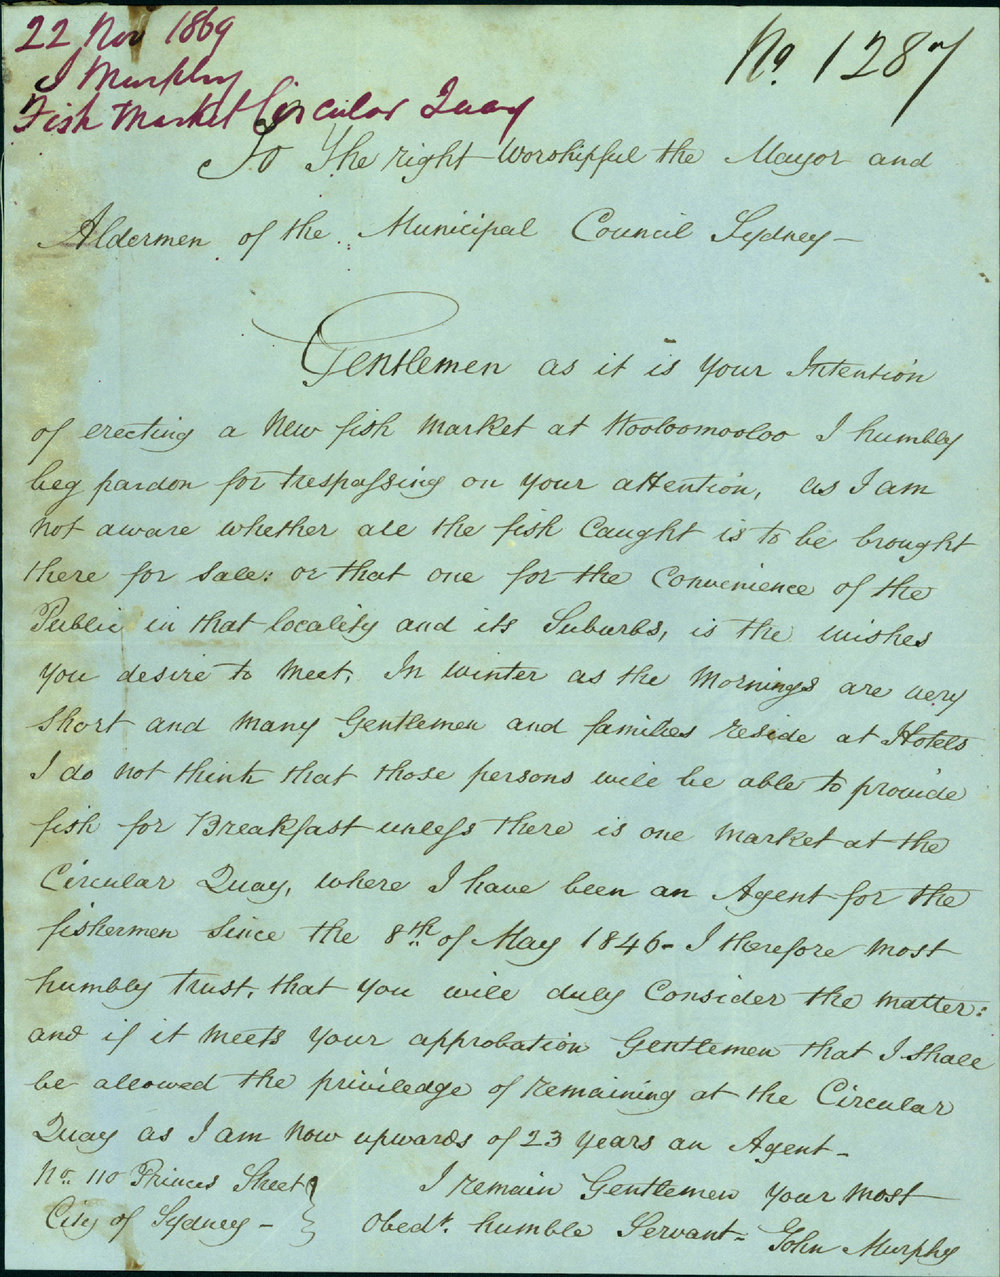 22 Nov 1869
J Murphy
Fish Market Circular Quay
No. 1287
To The right Worshipful the Mayor and
Aldermen of the Municipal Council Sydney—
Gentlemen as it is your Intention
of erecting a New fish Market at Wooloomooloo I humbly
beg pardon for trespassing on your attention, as I am
not aware whether all the fish Caught is to be brought
there for Sale: or that one for the Convenience of the
Public in that locality and its Suburbs, is the wishes
you desire to Meet, In winter as the Mornings are very
Short and Many Gentlemen and families reside at Hotels
I do not think that those persons will be able to provide
fish for Breakfast unless there is one Market at the
Circular Quay, where I have been an Agent for the
fishermen Since the 8th of May 1846– I therefore Most
humbly trust, that you will duly Consider the Matter:
and if it Meets your approbation Gentlemen that I Shall
be allowed the priviledge of remaining at the Circular
Quay as I am Now upwards of 23 years an Agent–
No. 110 Princes Street
City of Sydney –
I remain Gentlemen your Most
Obedt. humble Servant–
John Murphy